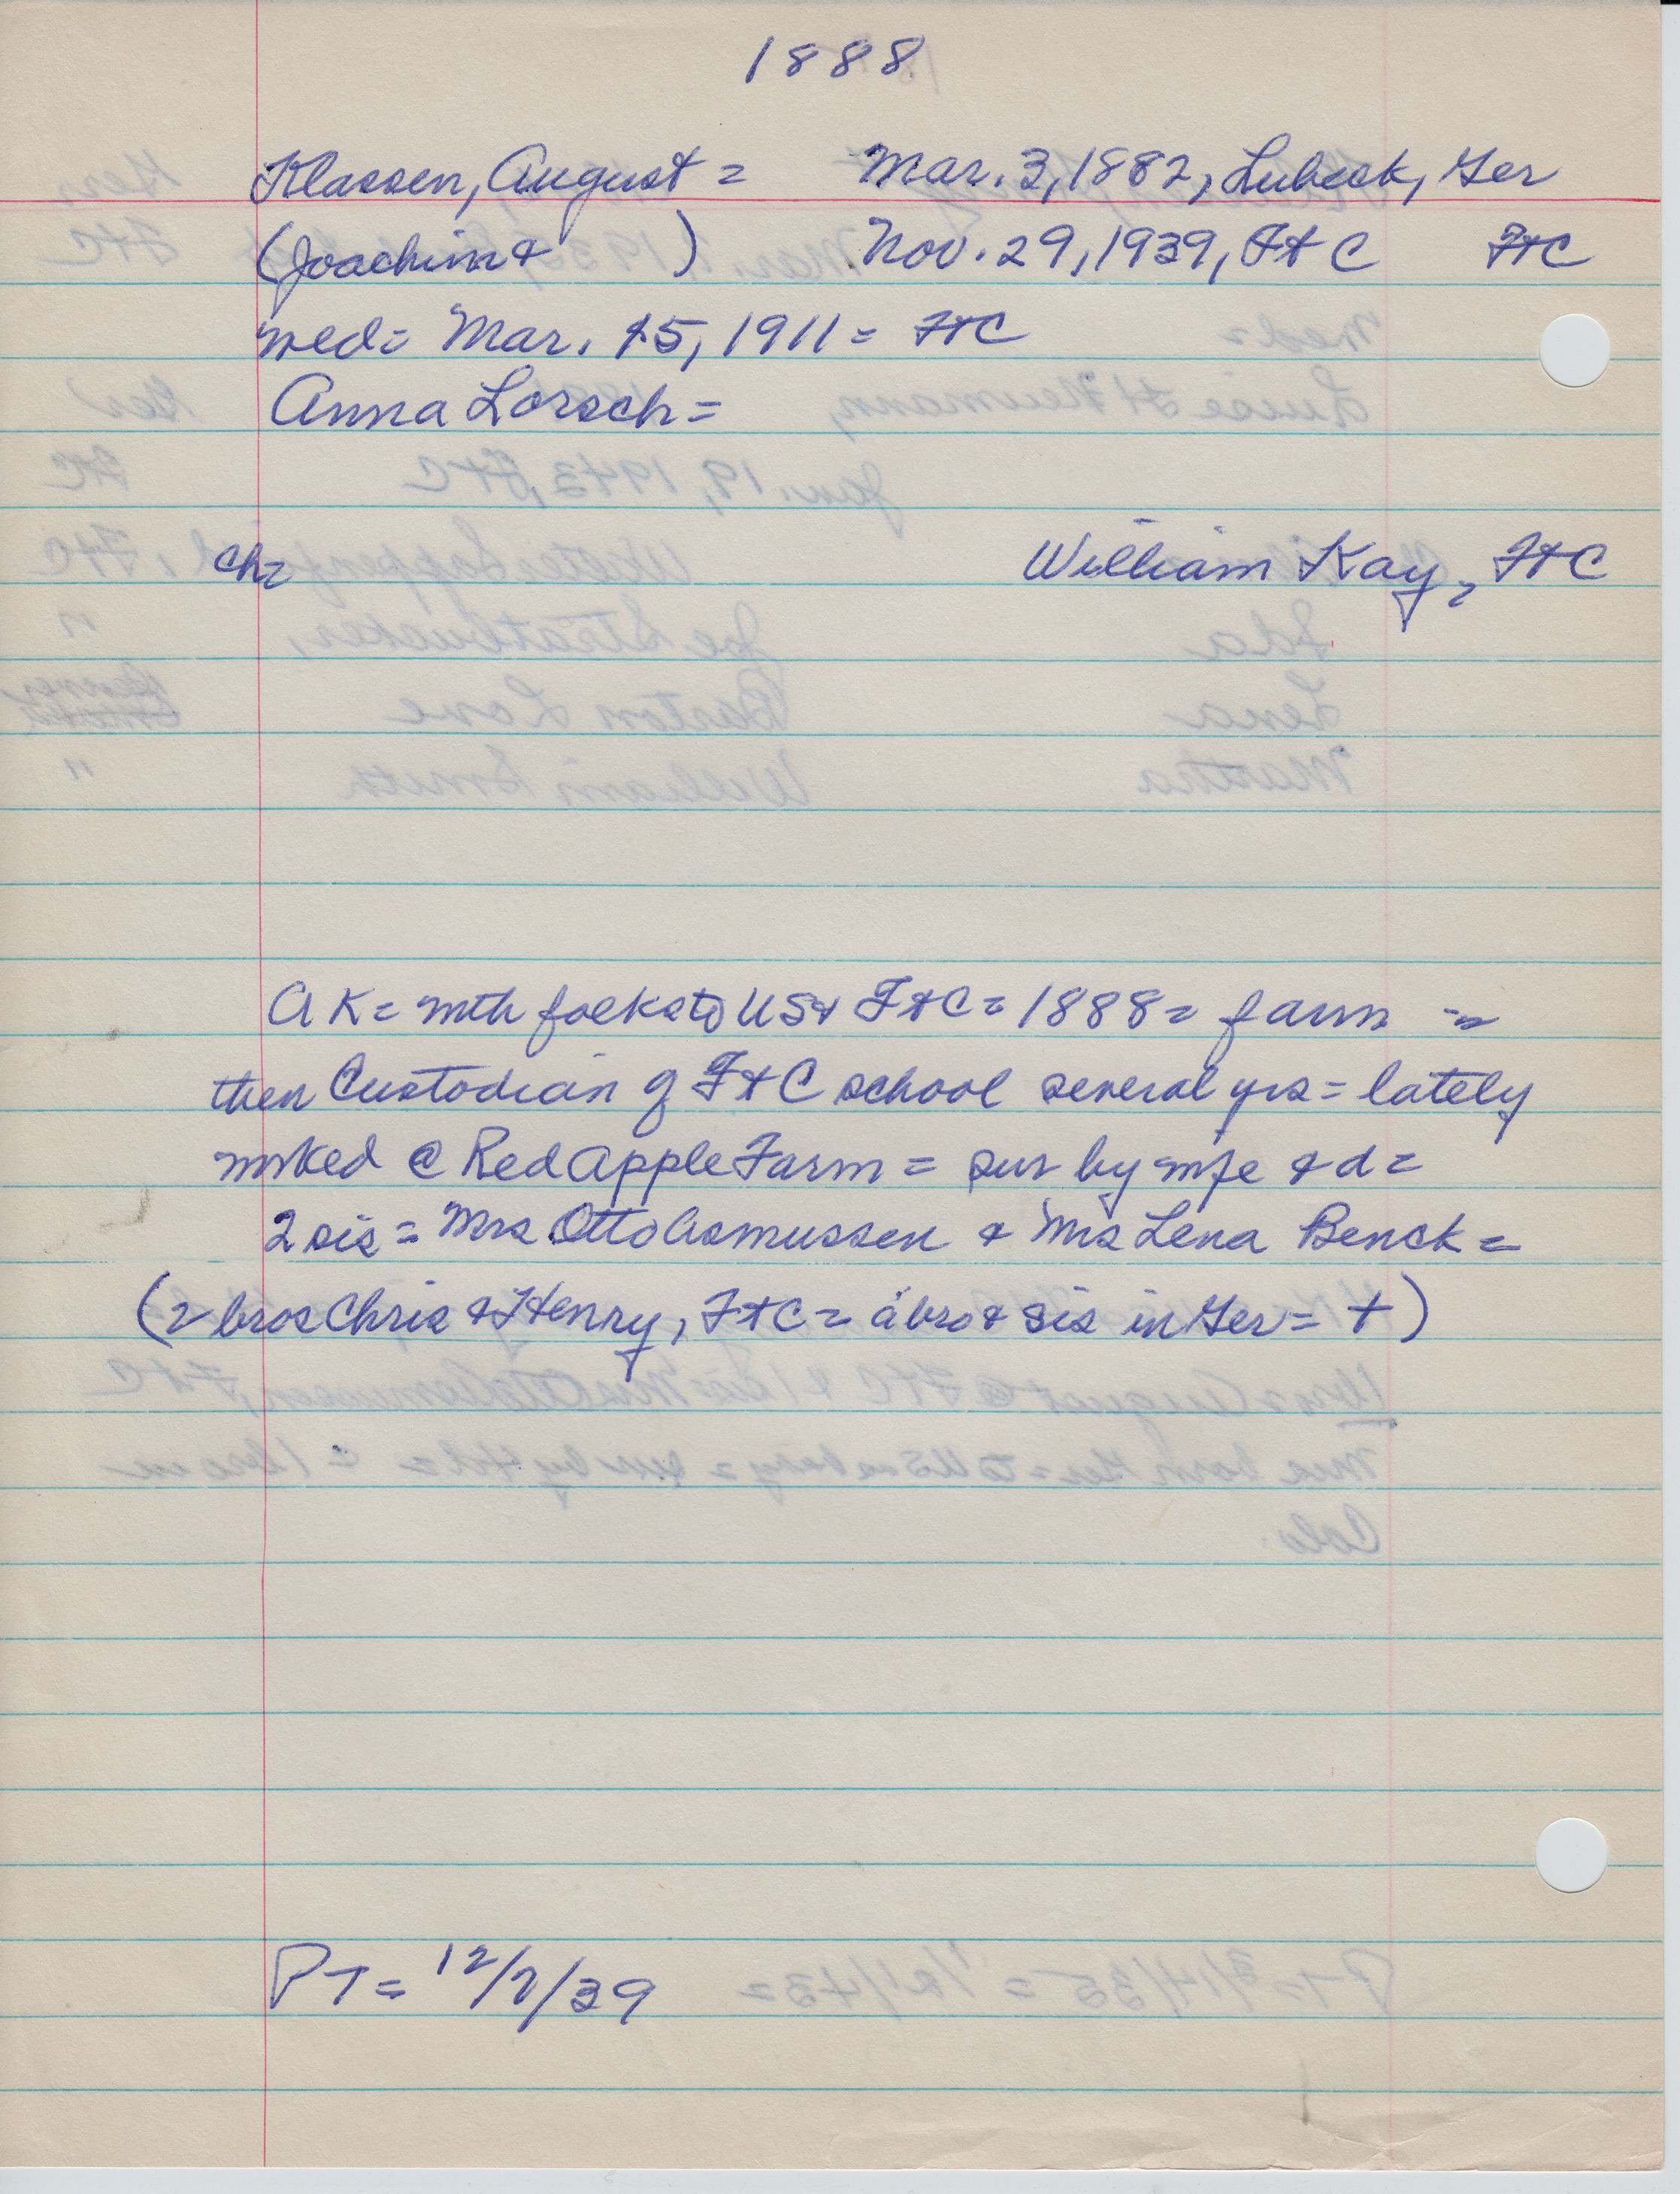 1888
Klassen, August = Mar. 3, 1882, Lubeck, Ger
(Joachim & ) Nov. 29, 1939, Ft C FtC
wed= Mar. 15, 1911 = FtC
Anna Lorsch =
ch= William Kay, FtC
AK = with folks to US & FtC = 1888 = farm =
then Custodian of FtC school several yrs = lately
wrked @ Red Apple Farm = sur by wife & d =
2 sis = Mrs Otto Asmussen & Mrs Lena Benck =
(2 bros Chris & Henry, FtC = a bro & sis in Ger = +)
PT = 12/7/39